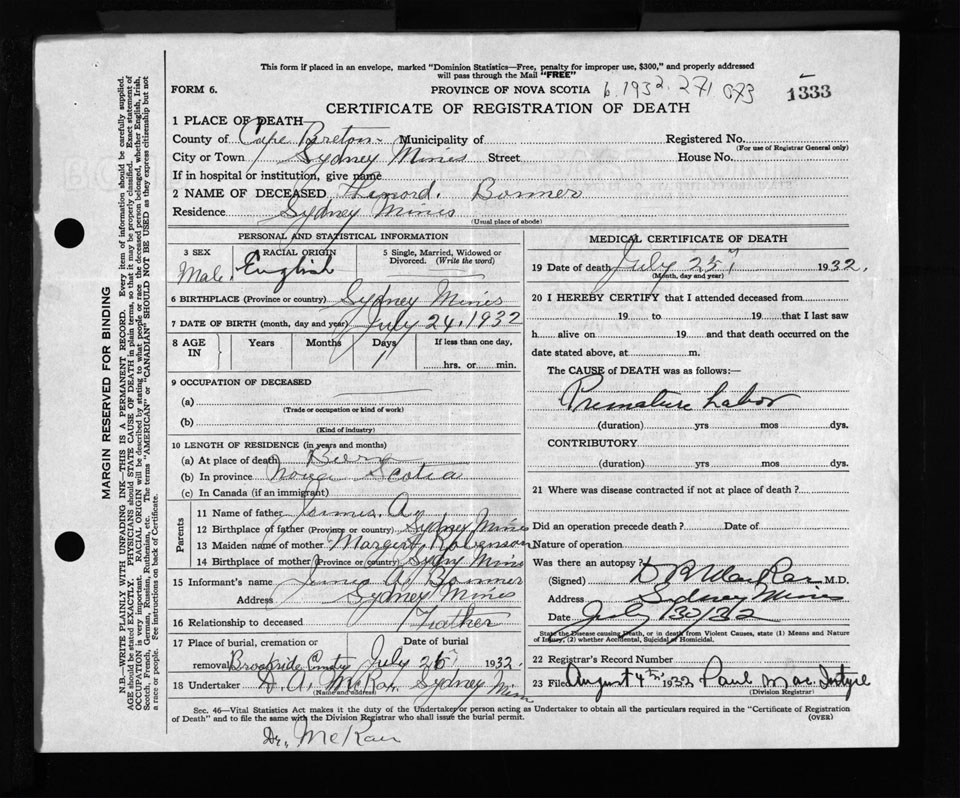 This form if placed in an envelope, marked "Dominion Statistics—Free, penalty for improper use, $300," and properly addressed
will pass through the Mail "FREE"
FORM 6. PROVINCE OF NOVA SCOTIA 6.1932. 271 073 1333
CERTIFICATE OF REGISTRATION OF DEATH
1 PLACE OF DEATH
County of Cape Breton Municipality of Registered No.
(For use of Registrar General only)
City or Town Sydney Mines Street House No.
If in hospital or institution, give name
2 NAME OF DECEASED Bonner
Residence Sydney Mines
(Usual place of abode)
PERSONAL AND STATISTICAL INFORMATION
3 SEX 4 RACIAL ORIGIN 5 Single, Married, Widowed or
Divorced. (Write the word)
Male English
6 BIRTHPLACE (Province or country) Sydney Mines
7 DATE OF BIRTH (month, day and year) July 24, 1932
8 AGE IN Years Months Days If less than one day,
1 hrs. or min.
9 OCCUPATION OF DECEASED
(a)
(Trade or occupation or kind of work)
(b)
(Kind of industry)
10 LENGTH OF RESIDENCE (in years and months)
(a) At place of death
(b) In province Nova Scotia
(c) In Canada (if an immigrant)
Parents
11 Name of father James A.
12 Birthplace of father (Province or country) Sydney Mines
13 Maiden name of mother Margert Robenson
14 Birthplace of mother (Province or country) Sydny Mins
15 Informant's name James A. Bonner
Address Sydney Mines
16 Relationship to deceased Father
17 Place of burial, cremation or Date of burial
removal Brookside July 26 1932.
18 Undertaker D. A. McRae, Sydney Mines
(Name and address)
MEDICAL CERTIFICATE OF DEATH
19 Date of death July 25, 1932.
(Month, day and year)
20 I HEREBY CERTIFY that I attended deceased from
19 to 19 that I last saw
h alive on 19 and that death occurred on the
date stated above, at m.
The CAUSE of DEATH was as follows:—
Premature Labor
(duration) yrs mos dys.
CONTRIBUTORY
(duration) yrs mos dys.
21 Where was disease contracted if not at place of death?
Did an operation precede death? Date of
Nature of operation
Was there an autopsy?
(Signed) M.D.
Address Sydney Mines
Date July 30/32
State the Disease causing Death, or in death from Violent Causes, state (1) Means and Nature
of Injury, (2) whether Accidental, Suicidal or Homicidal.
22 Registrar's Record Number
23 Filed August 4th 1932 Paul MacIntyre
(Division Registrar)
Sec. 46—Vital Statistics Act makes it duty of the Undertaker or person acting as Undertaker to obtain all the particulars required in the "Certificate of Registration
of Death" and to file the same with the Division Registrar who shall issue the burial permit. (OVER)
MARGIN RESERVED FOR BINDING
N.B.—WRITE PLAINLY WITH UNFADING INK—THIS IS A PERMANENT RECORD. Every item of information should be carefully supplied.
AGE should be stated EXACTLY. PHYSICIANS should STATE CAUSE OF DEATH in plain terms, so that it may be properly classified. Exact statement of
OCCUPATION is very important. RACIAL ORIGIN will be described by stating to what people or race the deceased person belonged, whether English, Irish,
Scotch, French, German, Russian, Ruthenian, etc. The terms "AMERICAN" or "CANADIAN" SHOULD NOT BE USED as they express citizenship but not
a race or people. See instructions on back of Certificate.